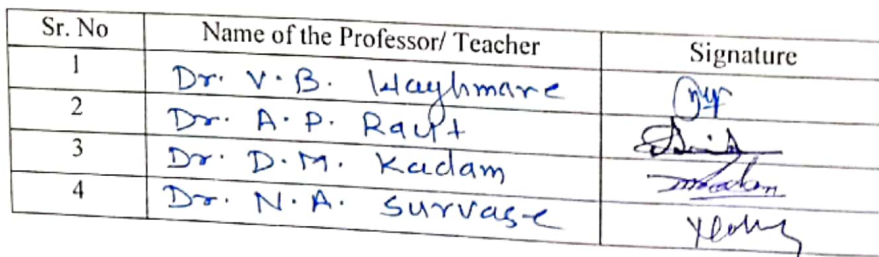 Sr. No Name of the Professor/ Teacher Signature
1 Dr. V. B. Waghmare
2 Dr. A. P. Raut
3 Dr. D. M. Kadam
4 Dr. N. A. Survase